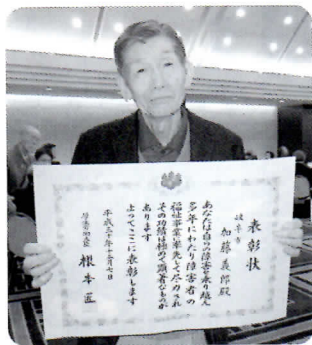 表彰状
岐阜市
加藤義郎殿
あなたは自らの障害を乗り越え
多年にわたり障害者の
福祉事業に率先して尽力され
その功績は極めて顕著なものが
あります
よってここに表彰します
平成三十年十二月七日
厚生労働大臣
根本匠